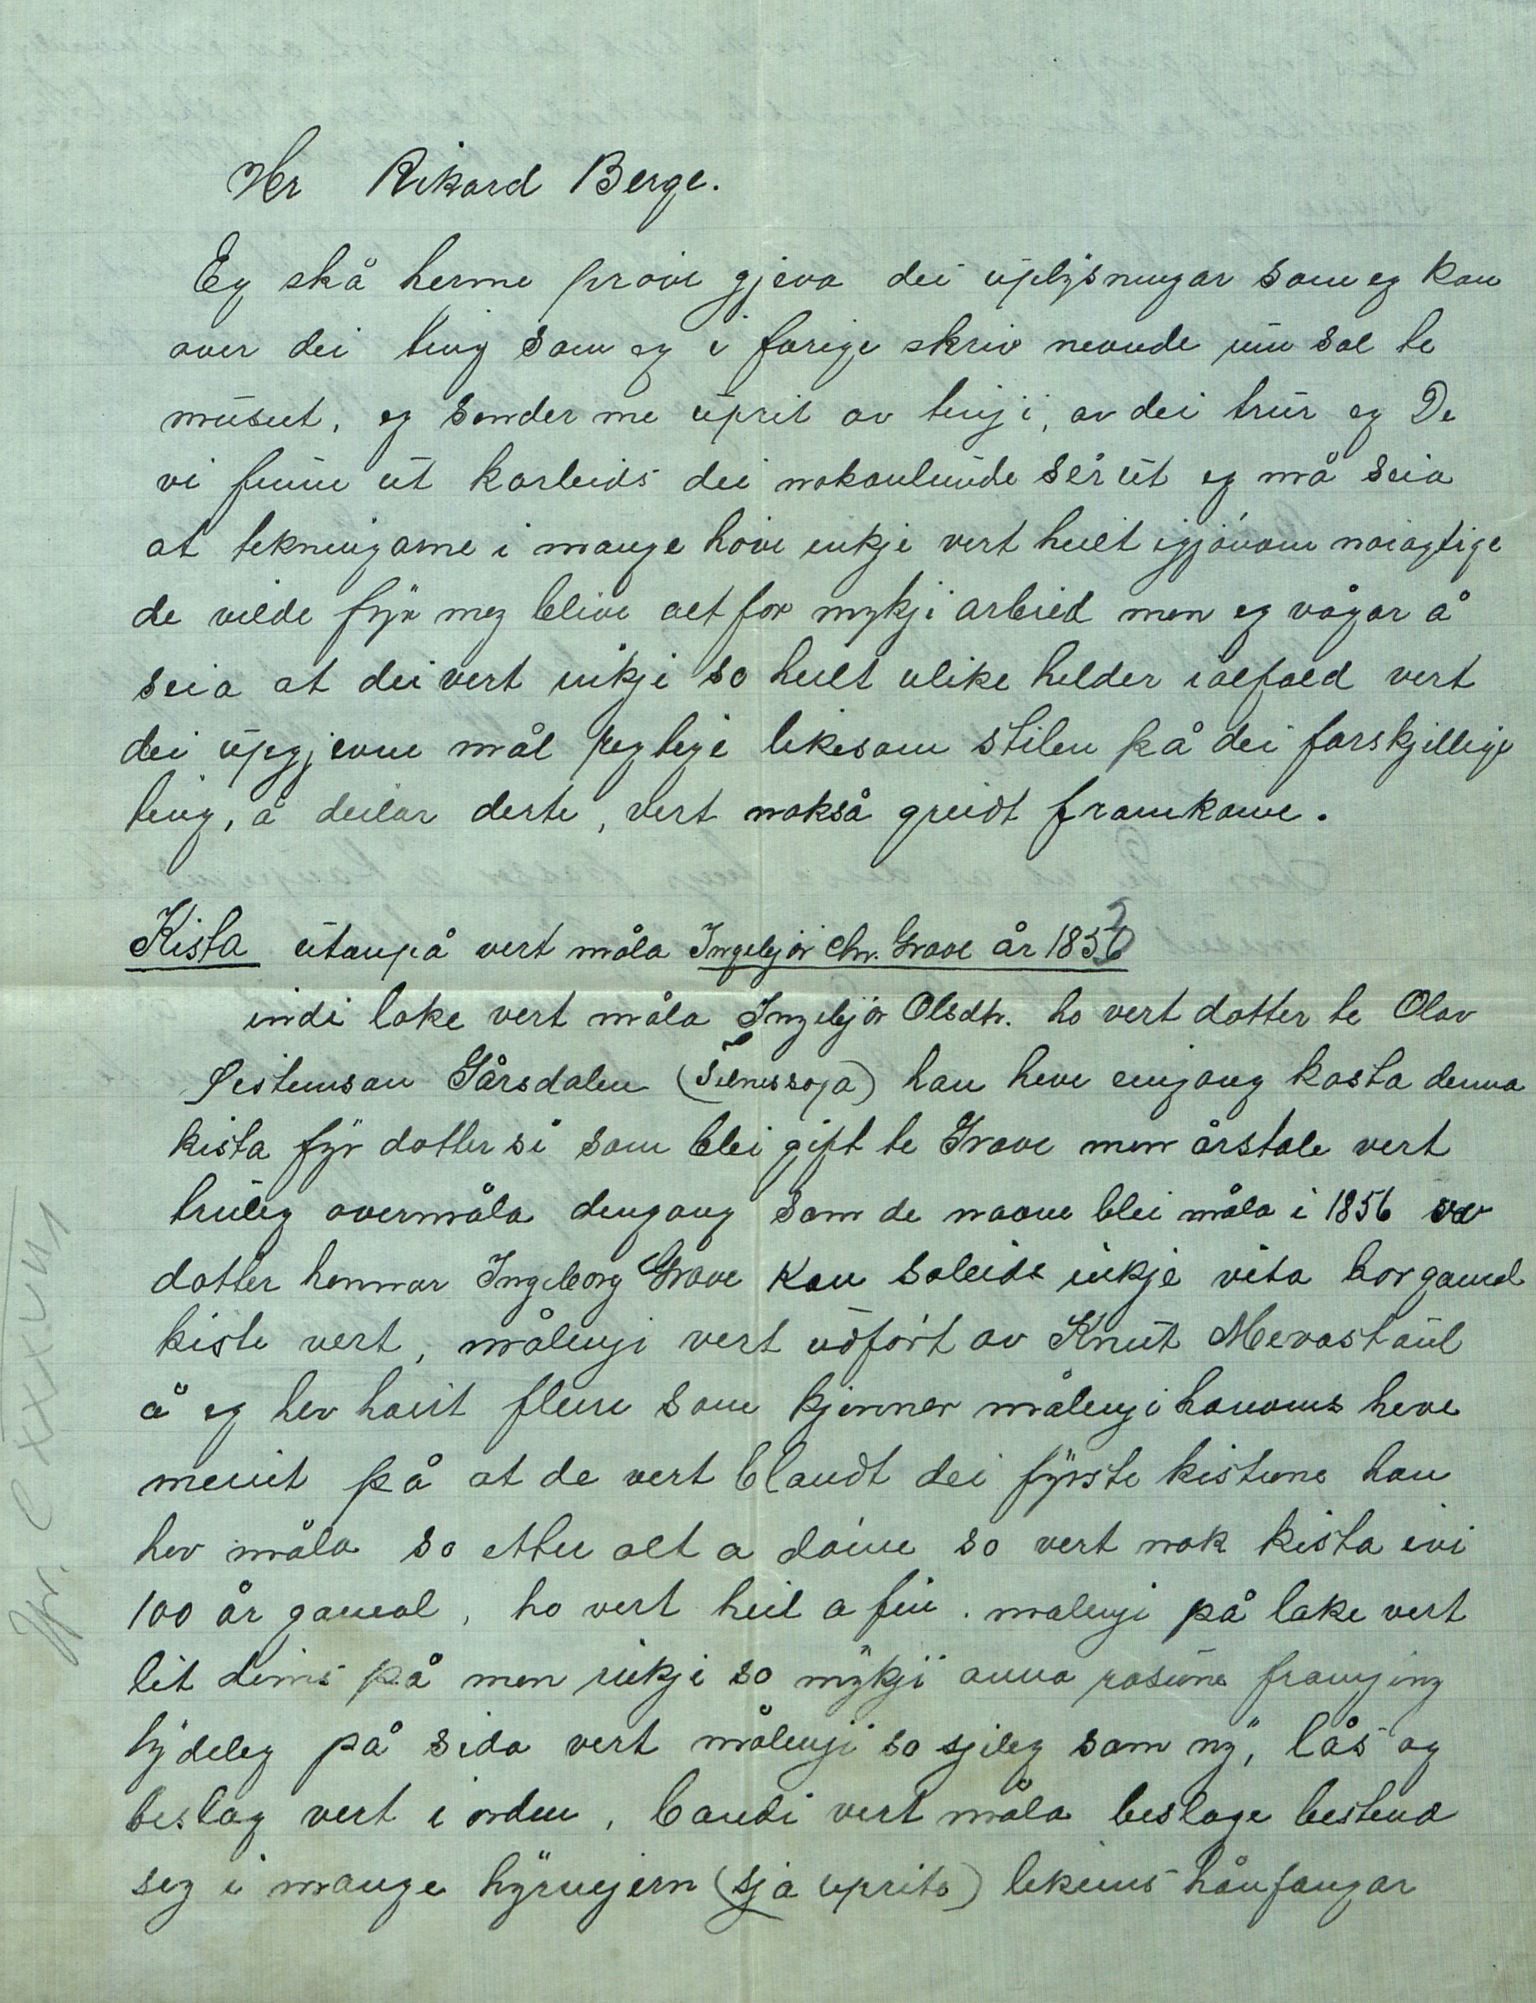 Hr Rikard Berge.
Eg skå herme prøve gjeva dei uplysningar som eg kan
over dei ting som eg i forige skriv nevnde um sal te
museet, eg sender me uprit av tingi, av dei trur eg De
vi finne ut korleids dei nokonlunde sér út eg må seia
at tekningane i mange høve inkje vert heilt igjønom nøiagtige
de vilde fyr meg blive alt for mykji arbeid men eg vågar å
seia at dei vert inkje so heilt ulike helder ialfald vert
dei upgjevne mål regtige likesom stilen på dei forskjellige
ting, å deilar derte, vert nokså greidt framkome.
Kista utanpå vert måla Ingebjør Chr. Grave år 1856
indi loke vert måla Ingebjør Olsdtr. ho vert dotter te Olav
Østenson Gårsdalen (Silnessoga) han heve eingong kosta denna
kista fyr dotter si som blei gift te Grave men årstale vert
truleg overmåla dengong som de navne blei måla i 1856
dotter hennar Ingeborg Grave kan soleids inkje vita hor gamal
kiste vert, målingi vert udført av Knut Mevastaul
å eg hev høirt fleire som kjenner målingi hanoms heve
meint på at de vert blandt dei fyrste kistune han
hev måla so etter alt a døme so vert nok kista ivi
100 år gamal, ho vert heil a fin. målingi på loke vert
lit dims på men inkji so mykji anna rosune framgjeng
tydeleg på sida vert målingi so sjileg som ny, lås og
beslag vert i orden, bandi vert måla beslage bestend
seg i mange hyrnejern (sjå uprits) lekeins hånfangar
Jr. CXXXVIII